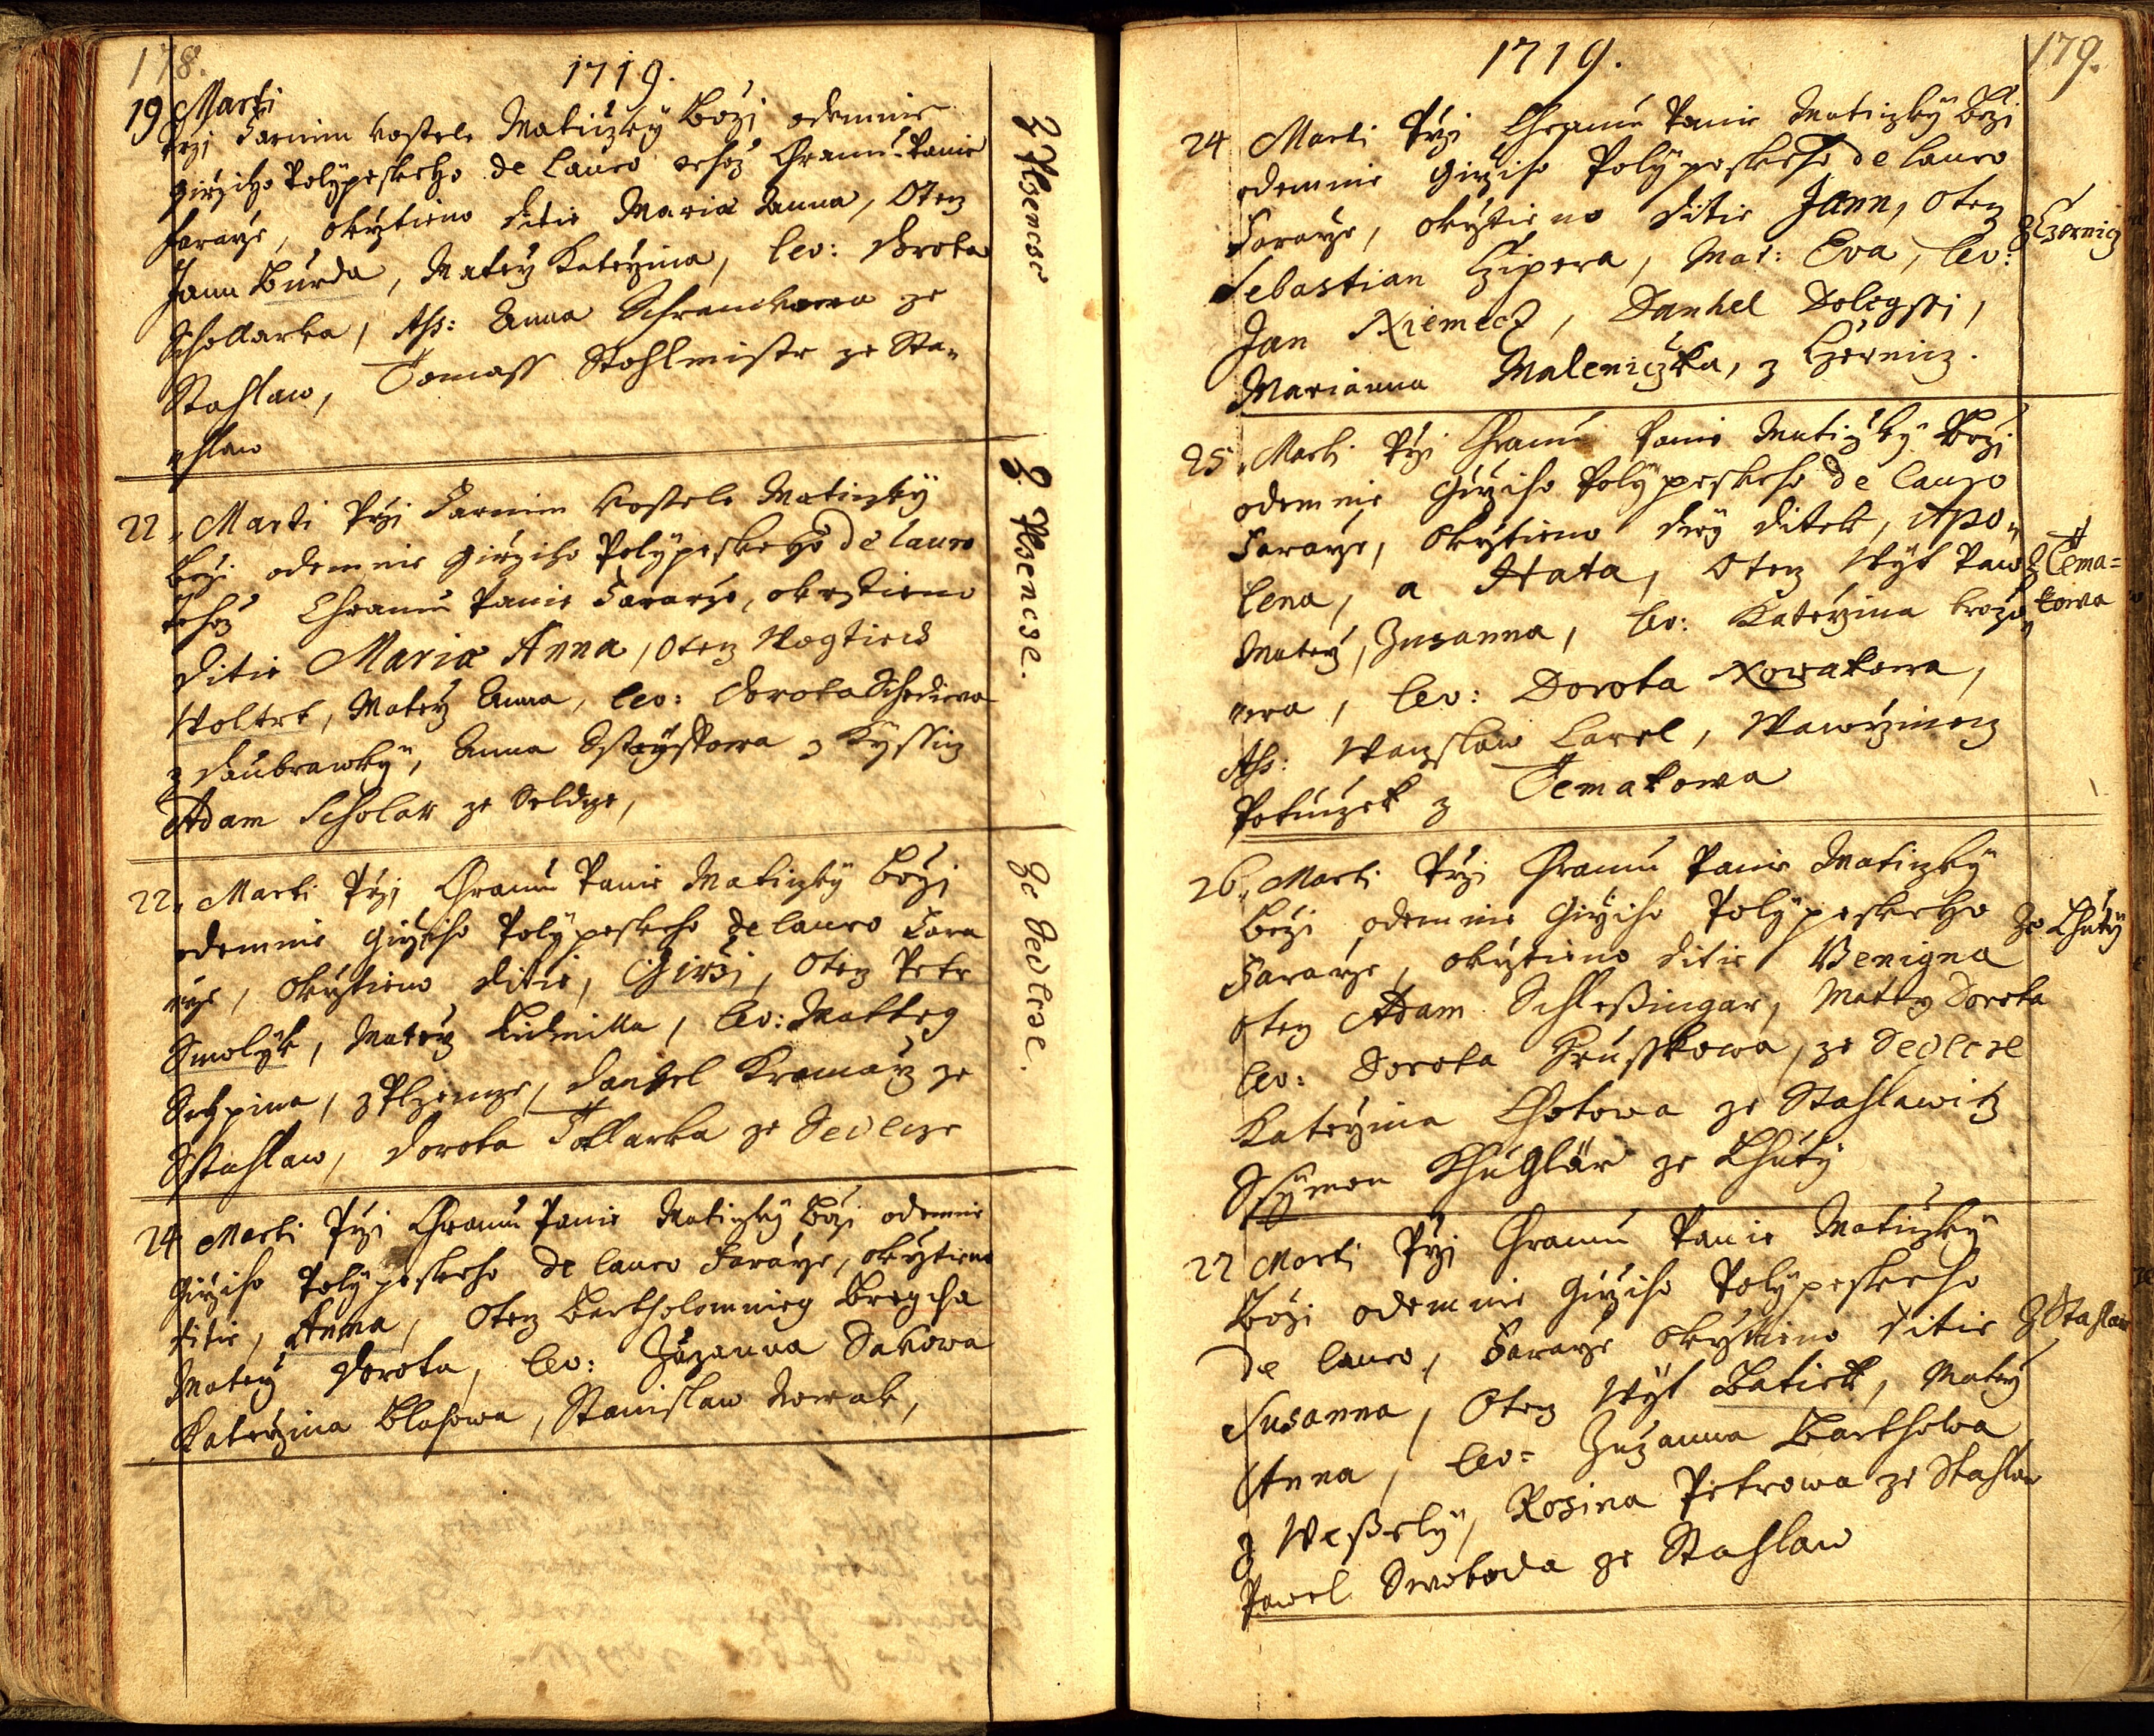 178.
1719.
19 Marti
Przi Farnim kostele Maticzky Bozj odemnie
Girziho Polypeskeho de Lauro tehoz Chramu Panie
Fararze, okrztieno Ditie Maria Anna, Otecz
Jann Burda, Matrz Katerzina, lev: Dorota
Schollarka, Ass: Anna
Stahlaw, Tomass Stohlmistr ze Sta„
„hlaw
z Plsencze
22„ Marti Przi Farnim kostele Maticzky
Bozi odemnie Girziho Polypeskeho de Lauro
tehoz Chramu Panie Fararze, okrztieno
Ditie Maria Anna, Otecz Wogtiech
Woltrt, Matrz Anna, lev: Dorota
z Daubrawky, Anna z Kyssicz
Adam Scholar ze Seldcze,
Z Plsencze.
22„ Marti Przi Chramu Panie Maticzky Bozj
odemnie Girziho Polypeskeho de Lauro Fara
rze, okrztieno Ditie, Girzi, Otecz Petr
Smolyk, Matrz Lidmilla, lev: Matteg
z Plzencze, Daniel Kramarz ze
Sstahlaw, Dorota ze Sedlcze
Ze Sedlcze.
24 Marti Przi Chramu Panie Maticzky Bozj odemnie
Girziho Polypeskeho de Lauro Fararze, okrztieno
Ditie, Anna, Otecz Bartholomnieg Bregcha
Matrz Dorota, lev: Zuzanna Sakowa
Katerzina Blahowa, Stanislaw Nowak,
1719.
179.
24 Marti Przi Chramu Panie Maticzky Bozi
odemnie Girziho Polypeskeho de Lauro
Fararze, okrztieno Ditie Jann, Otecz
Sebastian Czipera, Mat: Eva, lev:
Jan Niemecz, Danhel Dolegssi,
Marianna Maleniczka, z Czernicz.
Z Czernicz
25„ Marti Przi Chramu Panie Maticzky Bozi
odemnie Girziho Polypeskeho de Lauro
Fararze, Okrztieno Dwy Ditek, Apo„
lena, a Hata, Otecz Wyt Paw
Matrz, Zusanna, lev: Katerzina
„wa, lev: Dorota Nowakowa,
Ass: Waczslaw Karel, Wawrzinecz
Potuczek z Temakowa
Z Tema=
kowa
26„ Marti Przi Chramu Panie Maticzky
Bozi odemnie Girziho Polypeskeho
Fararze, okrztieno Ditie Benigna
Otecz Adam Schleßingar, Matrz Dorota
lev: Dorota Hrusskowa, ze Sedlcze
Katerzina Chotowa ze Stahlawicz
Ssymon Khuglar ze Lhuty
Ze Lhuty
27 Marti Przi Chramu Panie Maticzky
Bozi odemnie Girziho Polypeskeho
de Lauro, Fararze okrztieno Ditie
Susanna, Otecz Wyt Batiek, Matrz
Anna, lev: Zuzanna Barthowa
z Weßely, Rosina Petrowa ze Stahlaw
Pawel Swoboda ze Stahlaw
Z Stahlaw